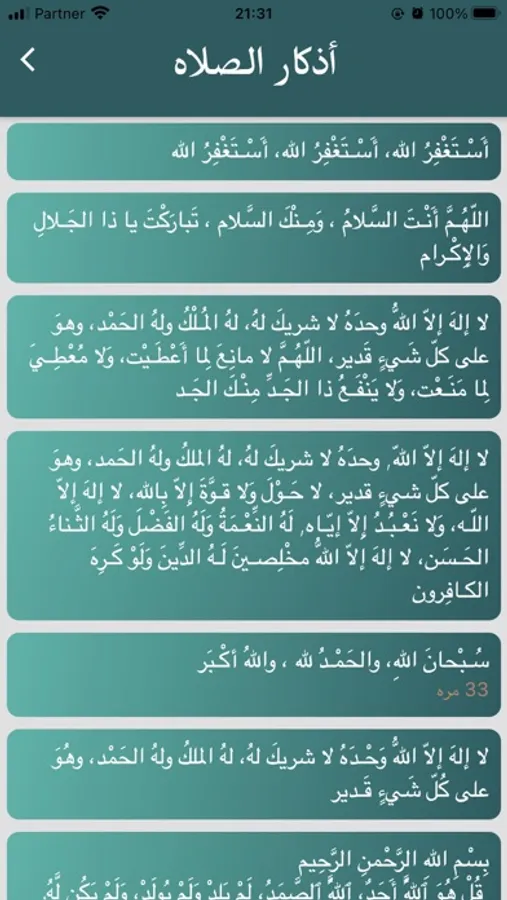 Partner 21:31 100%
أذكار الصلاه
أَسْـتَغْفِرُ الله، أَسْـتَغْفِرُ الله، أَسْـتَغْفِرُ الله
اللّهُـمَّ أَنْـتَ السَّلامُ ، وَمِـنْكَ السَّلام ، تَبارَكْتَ يا ذا الجَـلالِ
وَالإِكْـرام
لا إلهَ إلاّ اللّهُ وحدَهُ لا شريكَ لهُ، لهُ المُـلْكُ ولهُ الحَمْد، وهوَ
على كلّ شَـيءٍ قَدير، اللّهُـمَّ لا مانِعَ لِما أَعْطَـيْت، وَلا مُعْطِـيَ
لِما مَنَـعْت، وَلا يَنْفَـعُ ذا الجَـدِّ مِنْـكَ الجَـد
لا إلهَ إلاّ اللّه, وحدَهُ لا شريكَ لهُ، لهُ الملكُ ولهُ الحَمد، وهوَ
على كلّ شيءٍ قدير، لا حَـوْلَ وَلا قـوَّةَ إِلاّ بِاللهِ، لا إلهَ إلاّ
اللّـه، وَلا نَعْـبُـدُ إِلاّ إيّـاه, لَهُ النِّعْـمَةُ وَلَهُ الفَضْل وَلَهُ الثَّـناءُ
الحَـسَن، لا إلهَ إلاّ اللّهُ مخْلِصـينَ لَـهُ الدِّينَ وَلَوْ كَـرِهَ
الكـافِرون
سُـبْحانَ اللهِ، والحَمْـدُ لله ، واللهُ أكْـبَر
33 مره
لا إلهَ إلاّ اللّهُ وَحْـدَهُ لا شريكَ لهُ، لهُ الملكُ ولهُ الحَمْد، وهُوَ
على كُلّ شَيءٍ قَـدير
بِسْمِ اللهِ الرَّحْمنِ الرَّحِيم
قُلْ هُوَ ٱللَّهُ أَحَدٌ، ٱللَّهُ ٱلصَّمَدُ، لَمْ يَلِدْ وَلَمْ يُولَدْ، وَلَمْ يَكُن لَّهُۥ